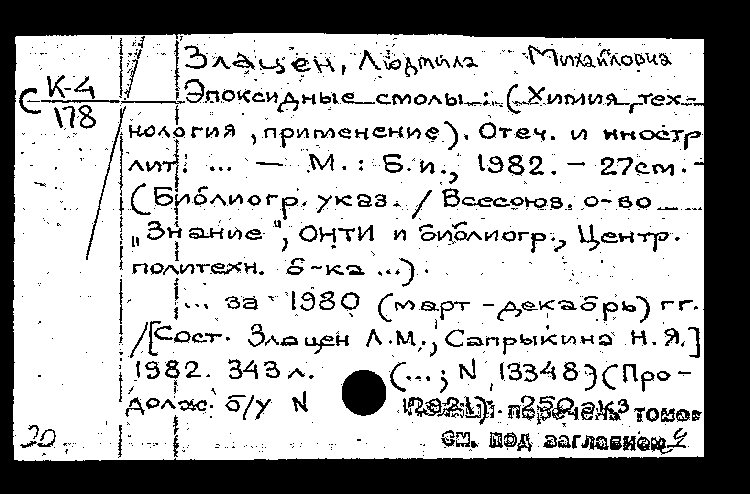 Злацен, Людмила Михайловна
С К-4
178
Эпоксидные смолы : (Химия, тех-
нология, применение). Отеч. и иностр
лит. ... — М. : Б.и., 1982. – 27см. –
(Библиогр. указ. / Всесоюз. о-во
„Знание", ОНТИ и библиогр., Центр.
политехн. б-ка ...).
... за 1980 (март – декабрь) гг.
/[Сост. Злацен Л.М., Сапрыкина Н.Я.]
1982. 343 л. (...; N 13348) (Про-
долж. б/у N 12921). 250 экз
перечень томов
см. под заглавием
20